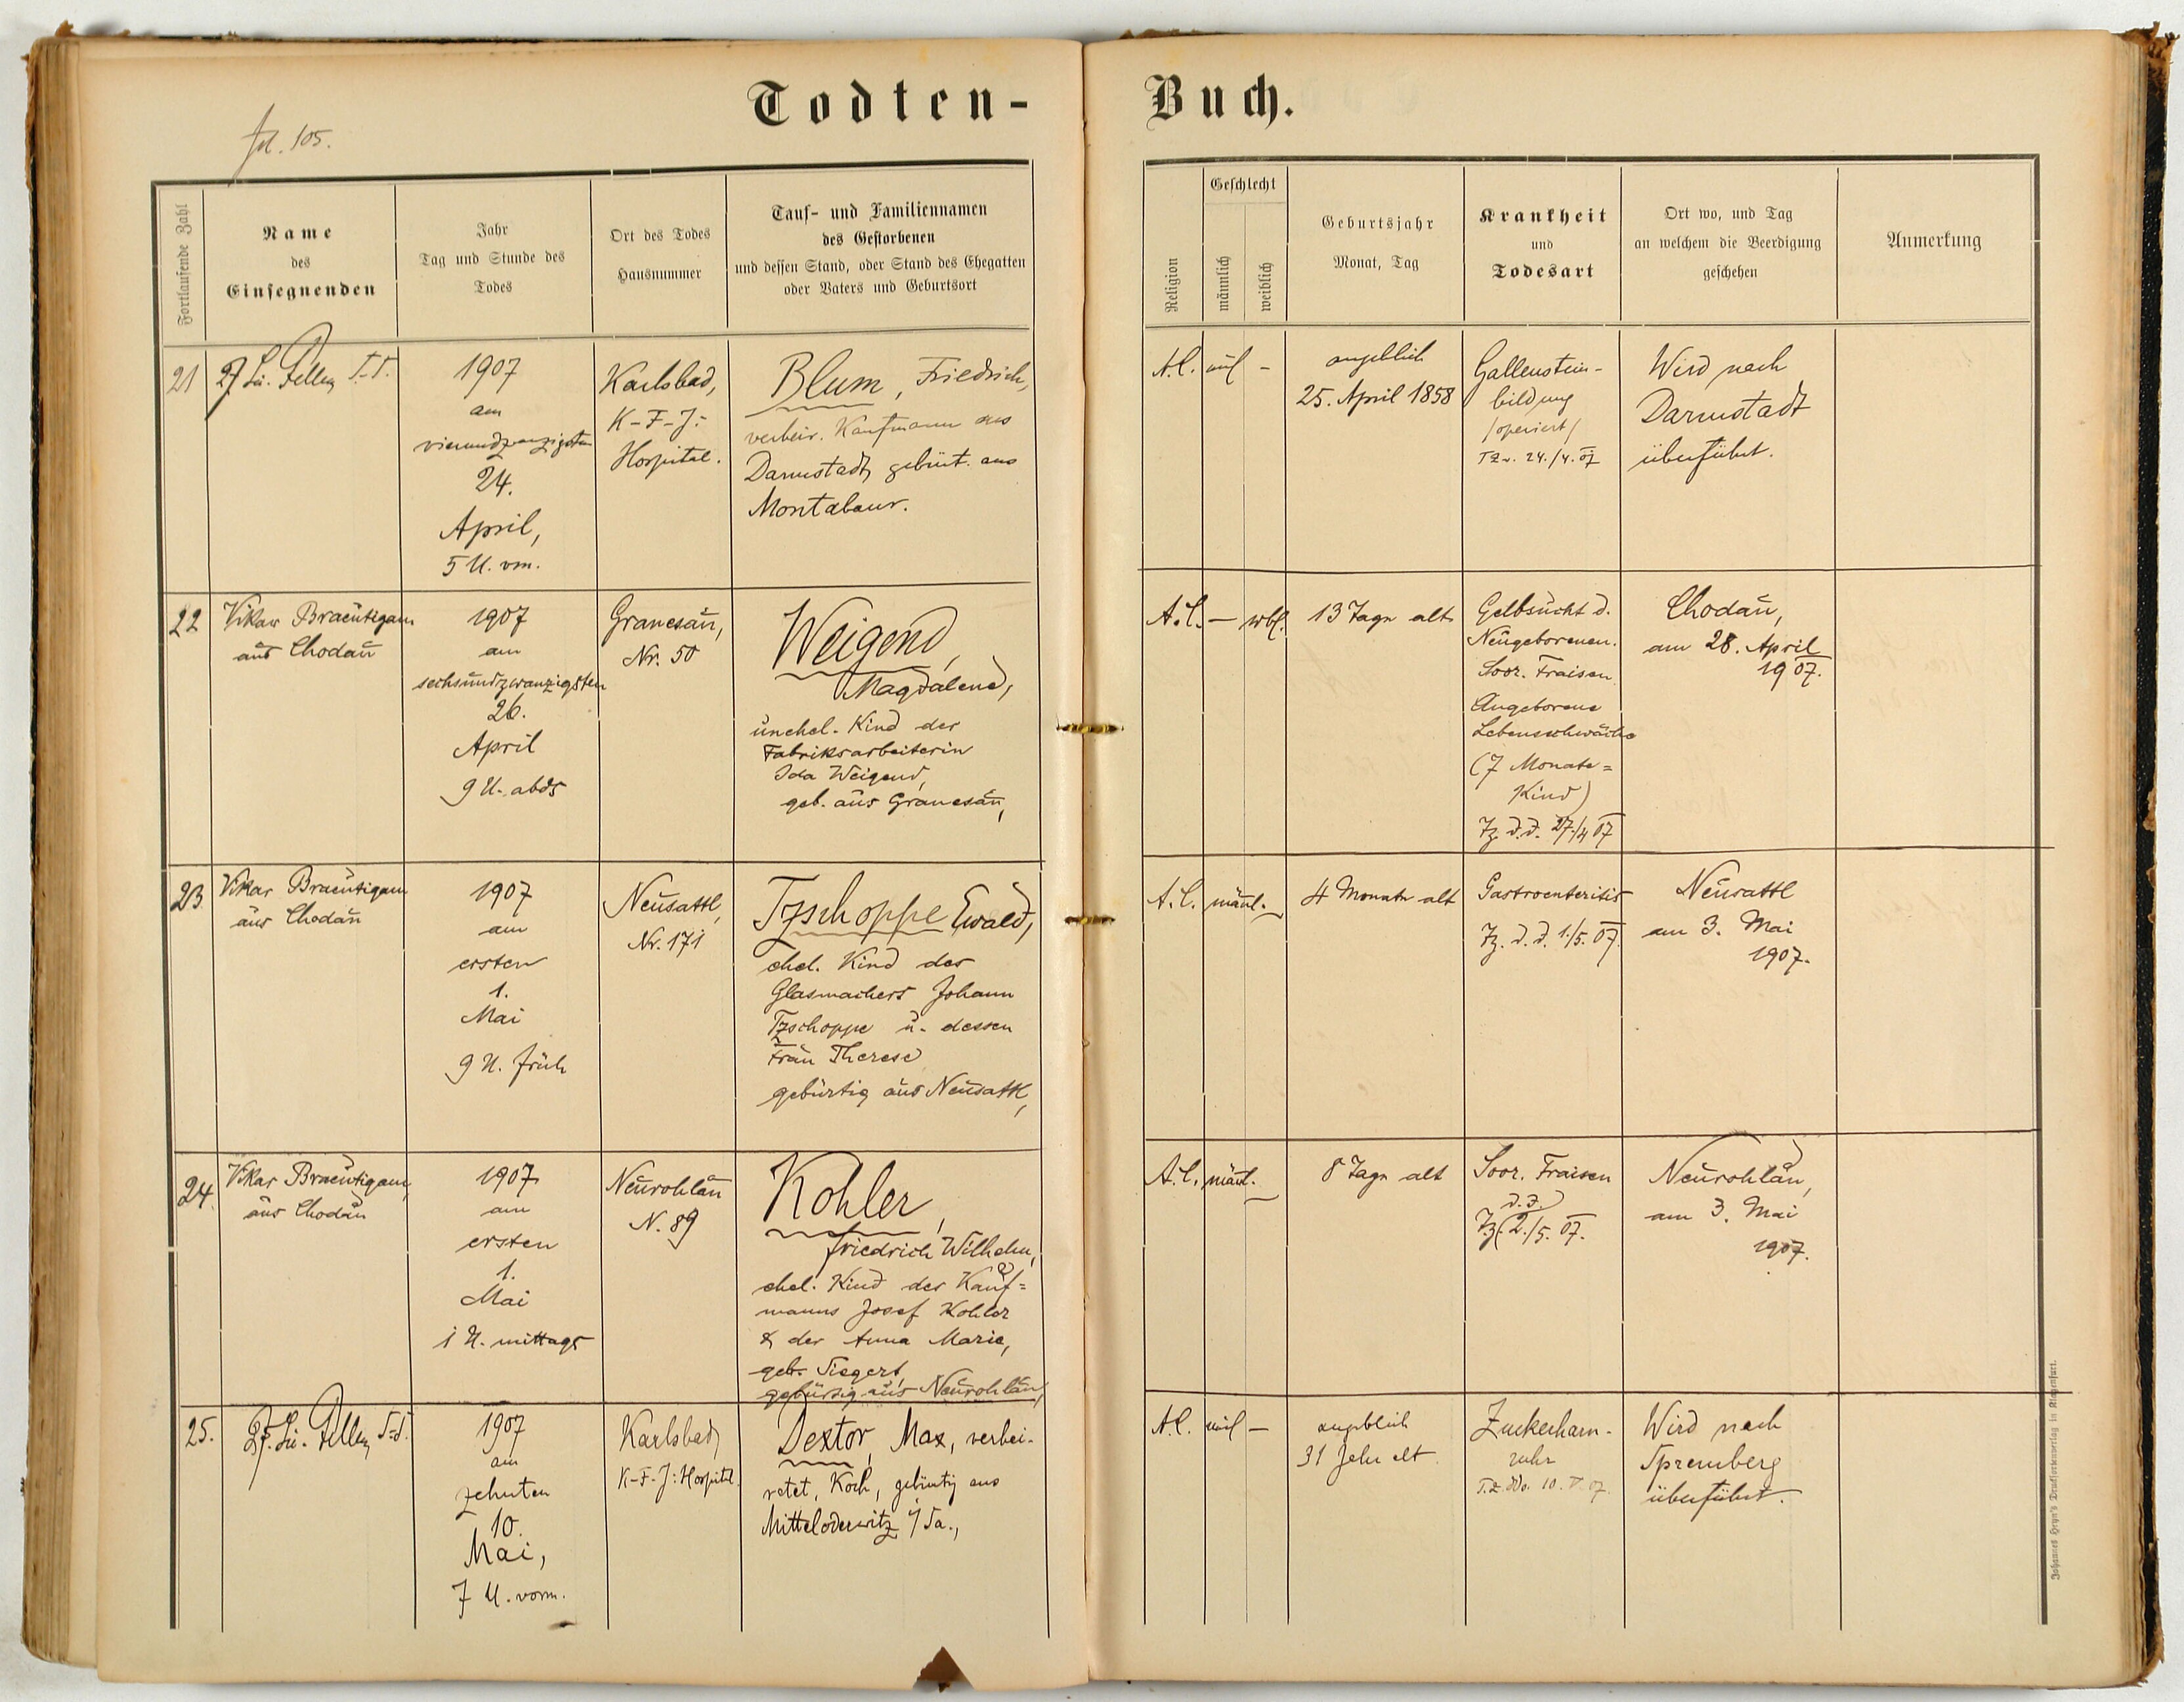 Todten-
Buch.
fol. 105.
Fortlaufende Zahl
Name
des
Einsegnenden
Jahr
Tag und Stunde des
Todes
Ort des Todes
Hausnummer
Tauf- und Familiennamen
des Gestorbenen
und dessen Stand, oder Stand des Ehegatten
oder Vaters und Geburtsort
Religion
Geschlecht
männlich
weiblich
Geburtsjahr
Monat, Tag
Krankheit
und
Todesart
Ort wo, und Tag
an welchem die Beerdigung
geschehen
Anmerkung
21
1907
am
vierundzwanzigsten
24.
April,
5 U. vm.
Karlsbad,
K-F-J:
Hospital.
Blum, Friedrich,
verheir. Kaufmann aus
Darmstadt, gebürt. aus
Montabaur.
A.C.
ml
-
angeblich
25. April 1858
Gallenstein-
bildung
/operiert/
TZ v. 24./4. 07
Wird nach
Darmstadt
überführt.
22
Vikar Braeutigam
aus Chodau
1907
am
sechsundzwanzigsten
26.
April
9 U. abds
Granesau,
Nr. 50
Weigend,
Magdalena,
unehel. Kind der
Fabriksarbeiterin
Ida Weigend,
geb. aus Granesau,
A.C.
-
wbl.
13 Tage alt
Gelbsucht d.
Neugeborenen.
Soor. Fraisen
Angeborene
Lebensschwäche
(7 Monate=
Kind)
Tz. d.d. 27./4 07
Chodau,
am 28. April
1907.
23.
Vikar Braeutigam
aus Chodau
1907
am
ersten
1.
Mai
9 U. früh
Neusattl,
Nr. 171
Tzschoppe Ewald,
ehel. Kind des
Glasmachers Johann
Tzschoppe u. dessen
Frau Therese
gebürtig aus Neusattl,
A.C.
männl.
4 Monate alt
Gastroenteritis
Tz. d.d. 1./5. 07.
Neusattl
am 3. Mai
1907.
24.
Vikar Braeutigam,
aus Chodau
1907
am
ersten
1.
Mai
1 U. mittags
Neurohlau
N. 89
Kohler,
Friedrich Wilhelm,
ehel. Kind des Kauf=
manns Josef Kohler
& der Anna Marie,
geb. Siegert,
gebürtig aus Neurohlau,
A.C.
männl.
8 Tage alt
Soor. Fraisen
d.d.
Tz. 2./5. 07.
Neurohlau,
am 3. Mai
1907.
25.
1907
am
zehnten
10.
Mai,
7 U. vorm.
Karlsbad,
K-F-J: Hospital
Dextor, Max, verhei-
ratet, Koch, gebürtig aus
Mitteloderwitz i/Sa.,
A.C.
ml
-
angeblich
31 Jahr alt
Zuckerharn-
ruhr
T.Z. ddo. 10. V. 07.
Wird nach
Spremberg
überführt.
Johannes Heyn's Drucksortenverlag in Klagenfurt.